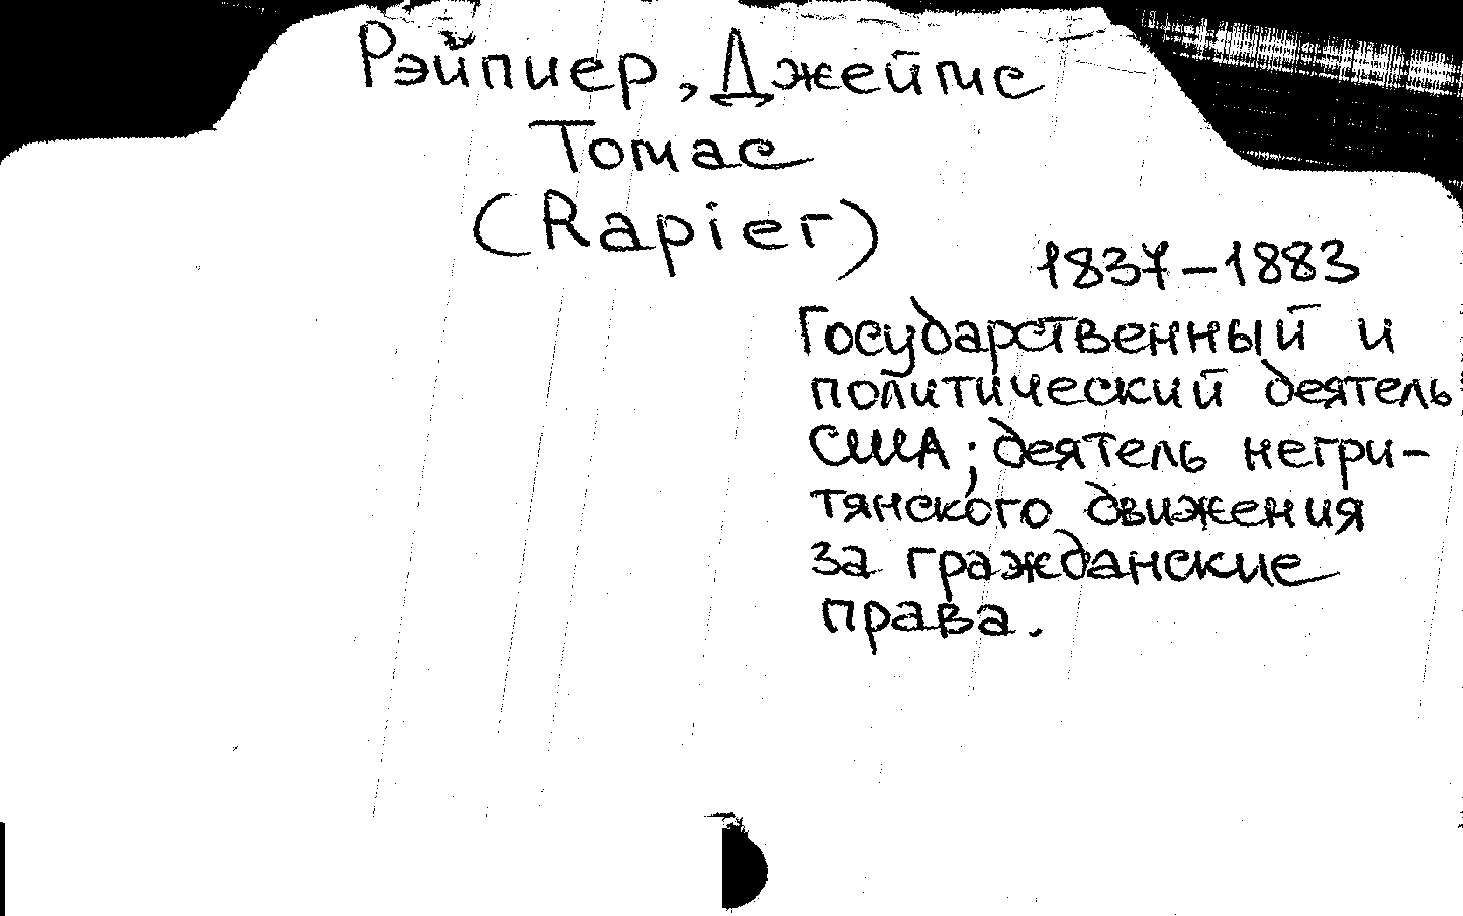 Рэйпиер, Джеймс
Томас
(Rapier)
1837-1883
Государственный и
политический деятель
США; деятель негри-
тянского движения
за гражданские
права.